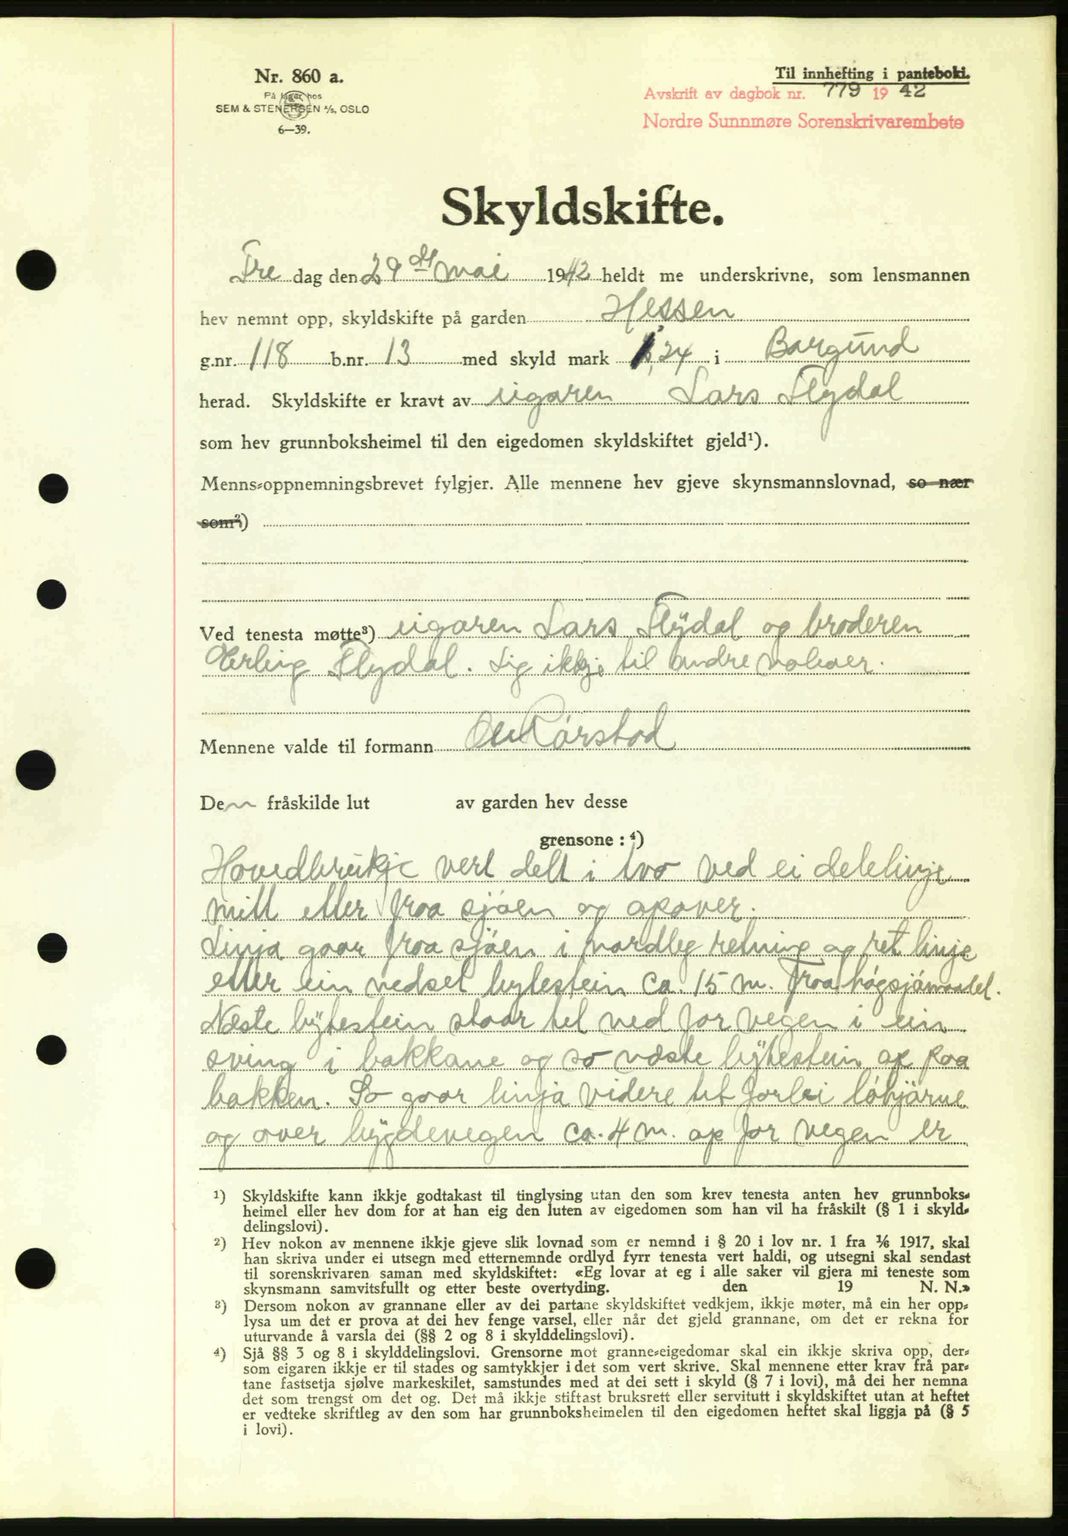 Nr. 860 a.
På lager hos
SEM & STENERSEN A/S, OSLO
6—39.
Til innhefting i panteboki.
Avskrift av dagbok nr. 779 19 42
Nordre Sunnmøre Sorenskrivarembete
Skyldskifte.
Fre dag den 29 de mai 1942 heldt me underskrivne, som lensmannen
hev nemnt opp, skyldskifte på garden Hessen
g.nr. 118 b.nr. 13 med skyld mark ,24 i Borgund
herad. Skyldskifte er kravt av eigaren Lars Flydal
som hev grunnboksheimel til den eigedomen skyldskiftet gjeld¹).
Menns-oppnemningsbrevet fylgjer. Alle mennene hev gjeve skynsmannslovnad, so nær
som²)
Ved tenesta møtte³) eigaren Lars Flydal og broderen
Erling Flydal. Lig ikkje til andre naboer.
Mennene valde til formann Ole Rørstad
Den fråskilde lut av garden hev desse
grensone : ⁴)
Hovedbrukje vert delt i tvo ved ei delelinje
mitt etter fraa sjøen og opover.
Linja gaar fraa sjøen i nordleg retning og ret linje
etter ein nedset bytestein ca 15 m. fraa høgsjömaalel.
Næste bytestein staar tet ved jor vegen i ein
sving i bakkane og so næste bytestein op paa
bakken. So gaar linja videre tet forbi løhjørne
og over bygdevegen ca. 4 m. op for vegen er
¹) Skyldskifte kann ikkje godtakast til tinglysing utan den som krev tenesta anten hev grunnboks-
heimel eller hev dom for at han eig den luten av eigedomen som han vil ha fråskilt (§ 1 i skyld-
delingslovi).
²) Hev nokon av mennene ikkje gjeve slik lovnad som er nemnd i § 20 i lov nr. 1 fra ⅙ 1917, skal
han skriva under ei utsegn med etternemnde ordlyd fyrr tenesta vert haldi, og utsegni skal sendast
til sorenskrivaren saman med skyldskiftet: «Eg lovar at eg i alle saker vil gjera mi teneste som
skynsmann samvitsfullt og etter beste overtyding. den 19 N. N.»
³) Dersom nokon av grannane eller av dei partane skyldskiftet vedkjem, ikkje møter, må ein her opp-
lysa um det er prova at dei hev fenge varsel, eller når det gjeld grannane, om det er rekna for
uturvande å varsla dei (§§ 2 og 8 i skylddelingslovi).
⁴) Sjå §§ 3 og 8 i skylddelingslovi. Grensorne mot granne-eigedomar skal ein ikkje skriva opp, der-
som eigaren ikkje er til stades og samtykkjer i det som vert skrive. Skal mennene etter krav frå par-
tane fastsetja sjølve markeskilet, samstundes med at dei sett i skyld (§ 7 i lovi), må dei her nemna
det som trengst om det og. Det må ikkje stiftast bruksrett eller servitutt i skyldskiftet utan at heftet
er vedteke skriftleg av den som har grunnboksheimelen til den eigedomen heftet skal liggja på (§ 5
i lovi).